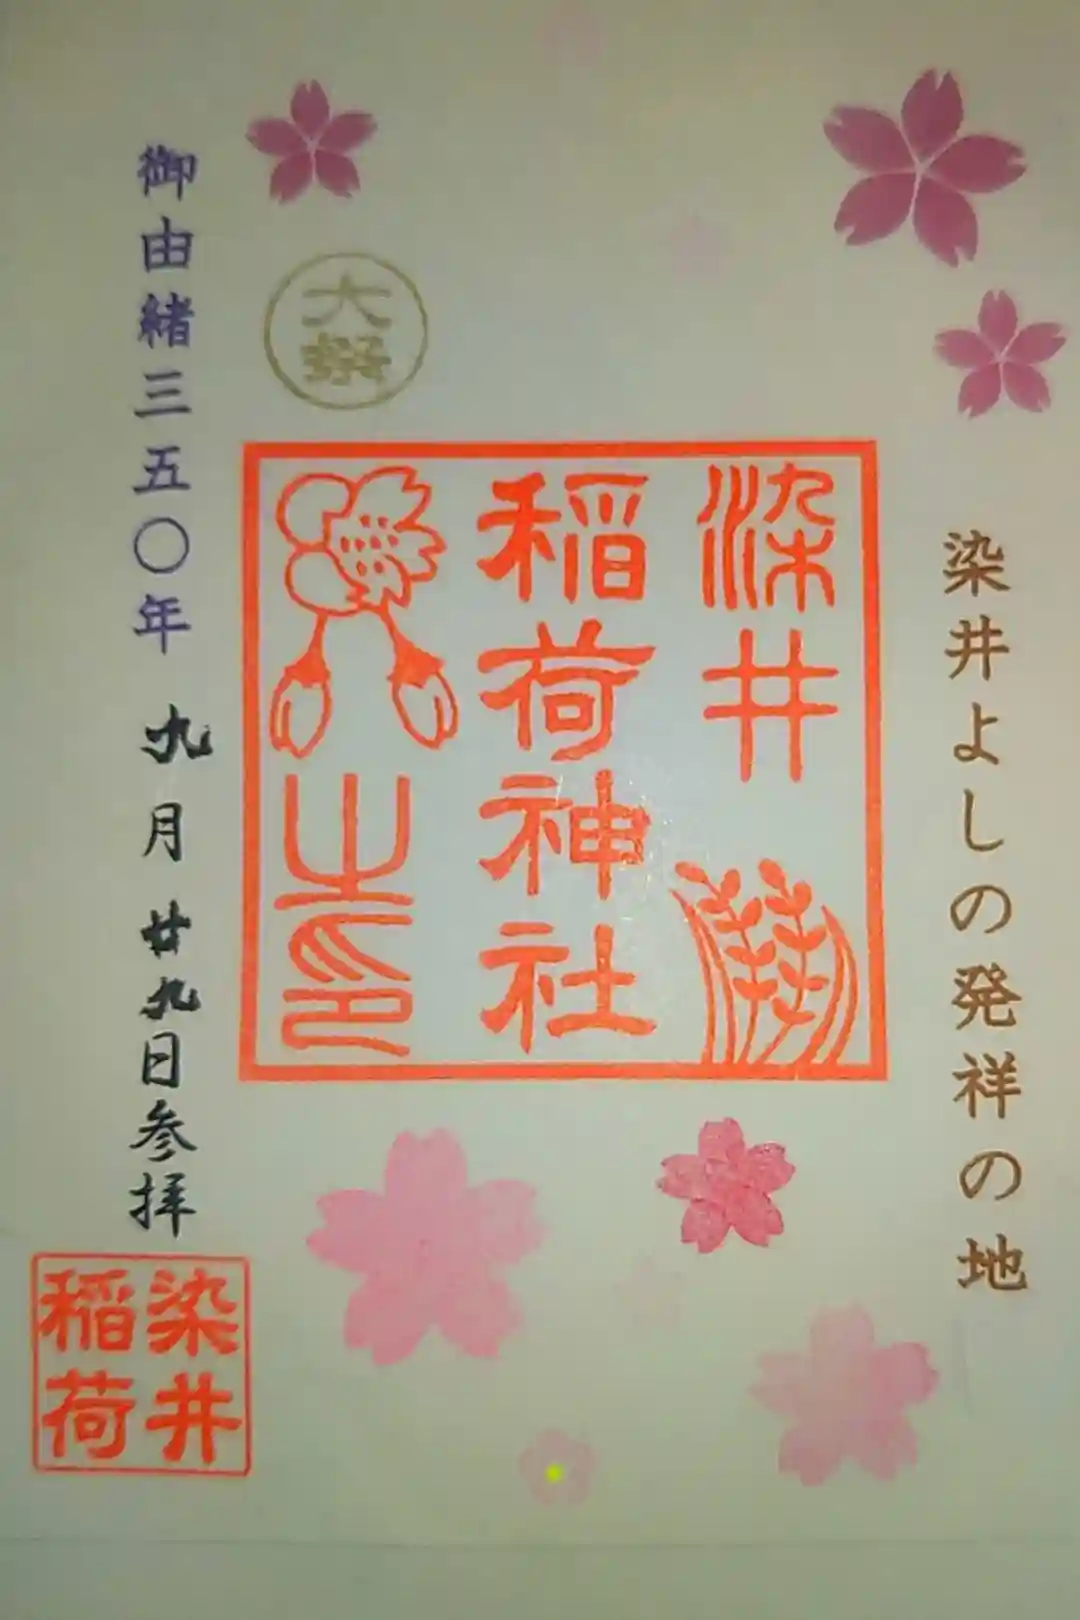 染井よしの発祥の地
染井
稲荷神社
之印
大祭
御由緒三五〇年
九月廿九日参拝
染井
稲荷